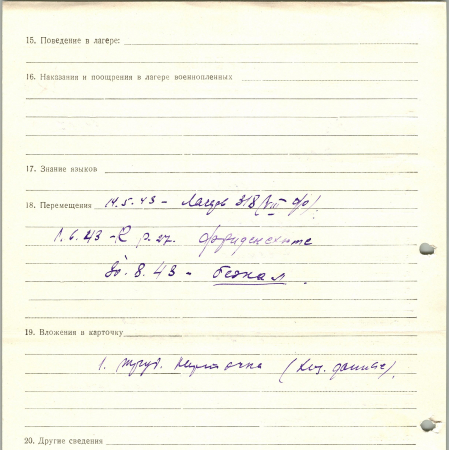 15. Поведение в лагере:
16. Наказания и поощрения в лагере военнопленных
17. Знание языков
18. Перемещения 14.5.43 - Лагерь 318 (VIII
1.6.43 - R
8.43 - бежал.
19. Вложения в карточку
1. карточка (
20. Другие сведения